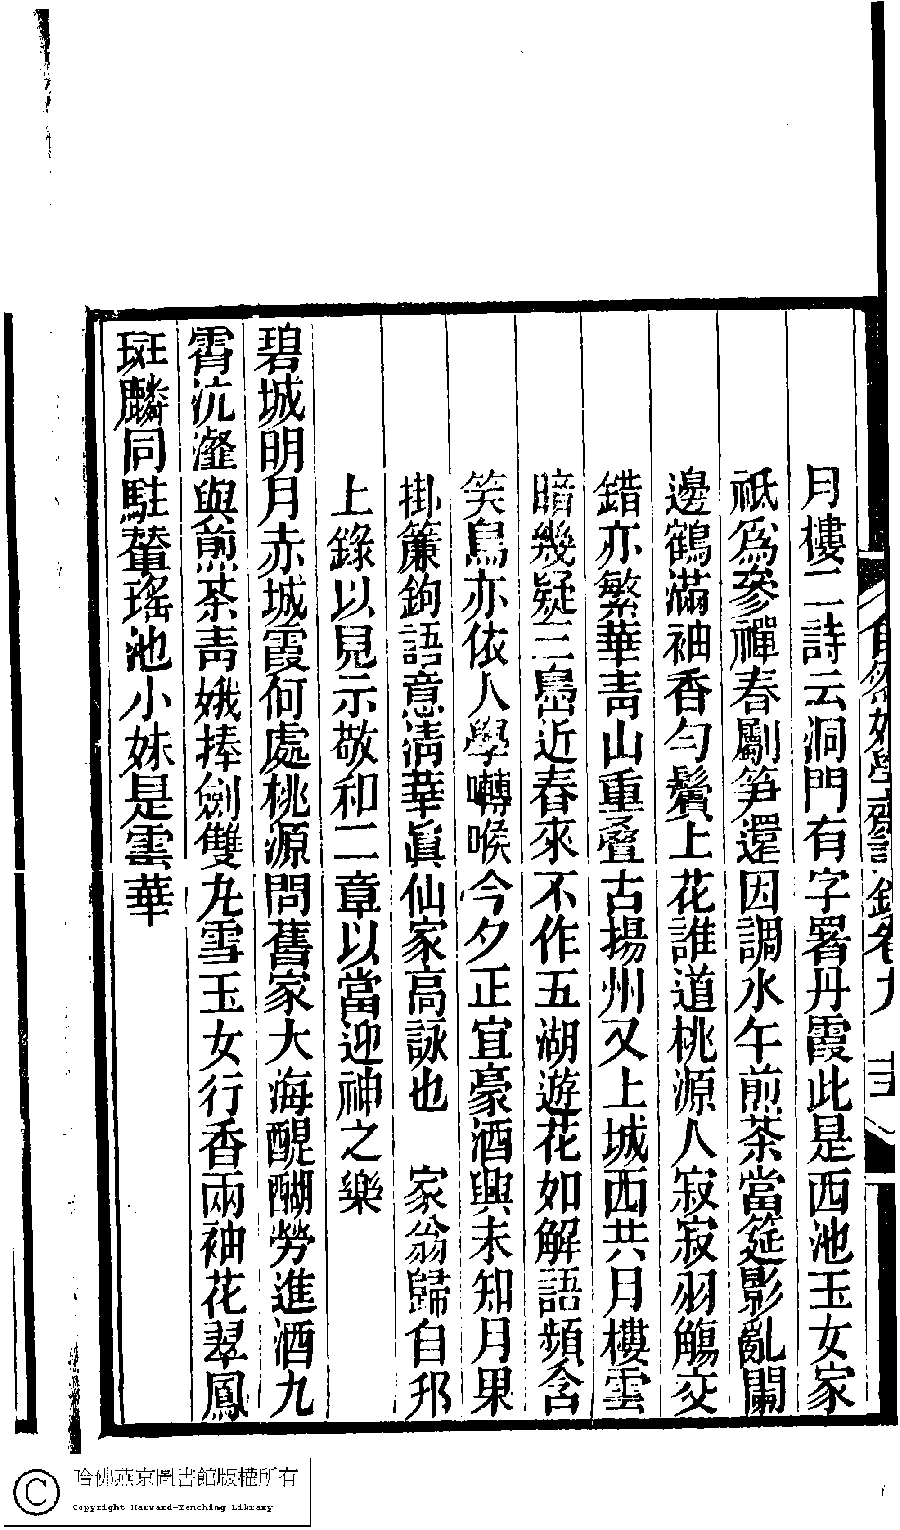 月樓二詩云洞門有字署丹霞此是西池玉女家
祗爲參禪春劚笋還因調水午煎茶當筵影亂闌
邊鶴滿袖香勻鬢上花誰道桃源人寂寂羽觴交
錯亦繁華靑山重疊古揚州又上城西共月樓雲
暗幾疑三島近春來不作五湖遊花如解語頻含
笑鳥亦依人學囀喉今夕正宜豪酒興未知月果
掛簾鉤語意淸華眞仙家高詠也 家翁歸自邗
上錄以見示敬和二章以當迎神之樂
碧城明月赤城霞何處桃源問舊家大海醍醐勞進酒九
霄沆瀣與煎茶靑娥捧劍雙丸雪玉女行香兩袖花翠鳳
斑麟同駐輦瑤池小妹是雲華
自然好學齋詩鈔卷九 十五
哈佛燕京圖書館版權所有
Copyright Harvard-Yenching Library